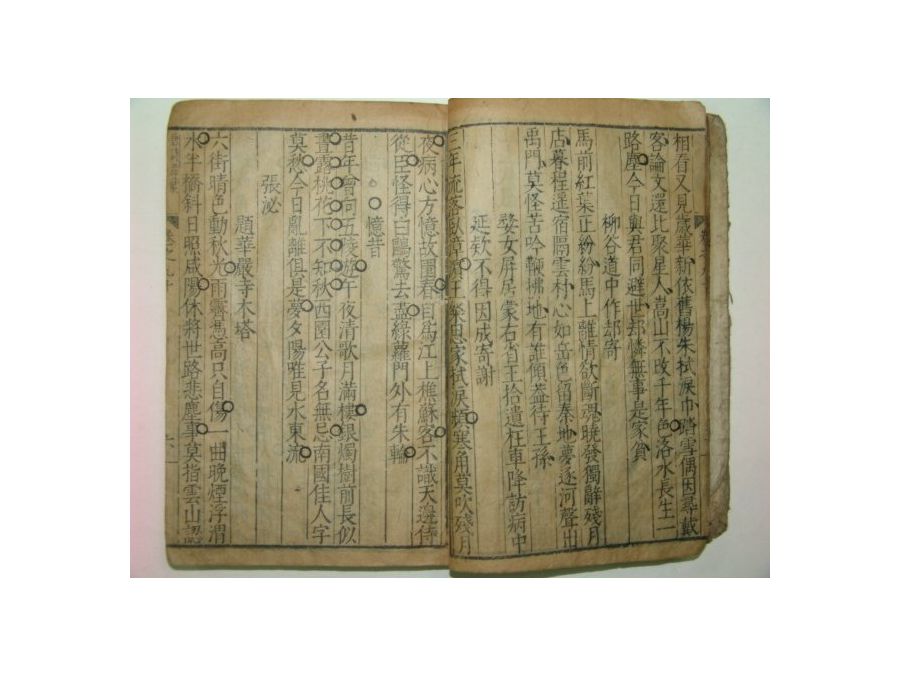 相看又見歲華新依舊楊朱拭淚巾踏雪偶因尋戴
客論文還比聚星人嵩山不改千年色洛水長生一
路塵今日與君同避世却憐無事是家貧
柳谷道中作却寄
馬前紅葉正紛紛馬上離情欲斷魂曉發獨辭殘月
店暮程遥宿隔雲村心如岳色留秦地夢逐河聲出
禹門莫怪苦吟鞭拂地有誰傾盖待王孫
婺女屏居蒙右省王拾遺枉車降訪病中
延欵不得因成寄謝
三年流客臥漳濱王粲思家拭淚頻寒角莫吹殘月
夜病心方憶故園春自爲江上樵蘇客不識天邊侍
從臣怪得白鷗驚去盡綠蘿門外有朱輪
憶昔
昔年曾向五陵遊午夜清歌月滿樓銀燭樹前長似
晝露桃花下不知秋西園公子名無忌南國佳人字
莫愁今日亂離俱是夢夕陽唯見水東流
張泌
題華嚴寺木塔
六街晴色動秋光雨霽馮高只自傷一曲晚煙浮渭
水半橋斜日照咸陽休將世路悲塵事莫指雲山認